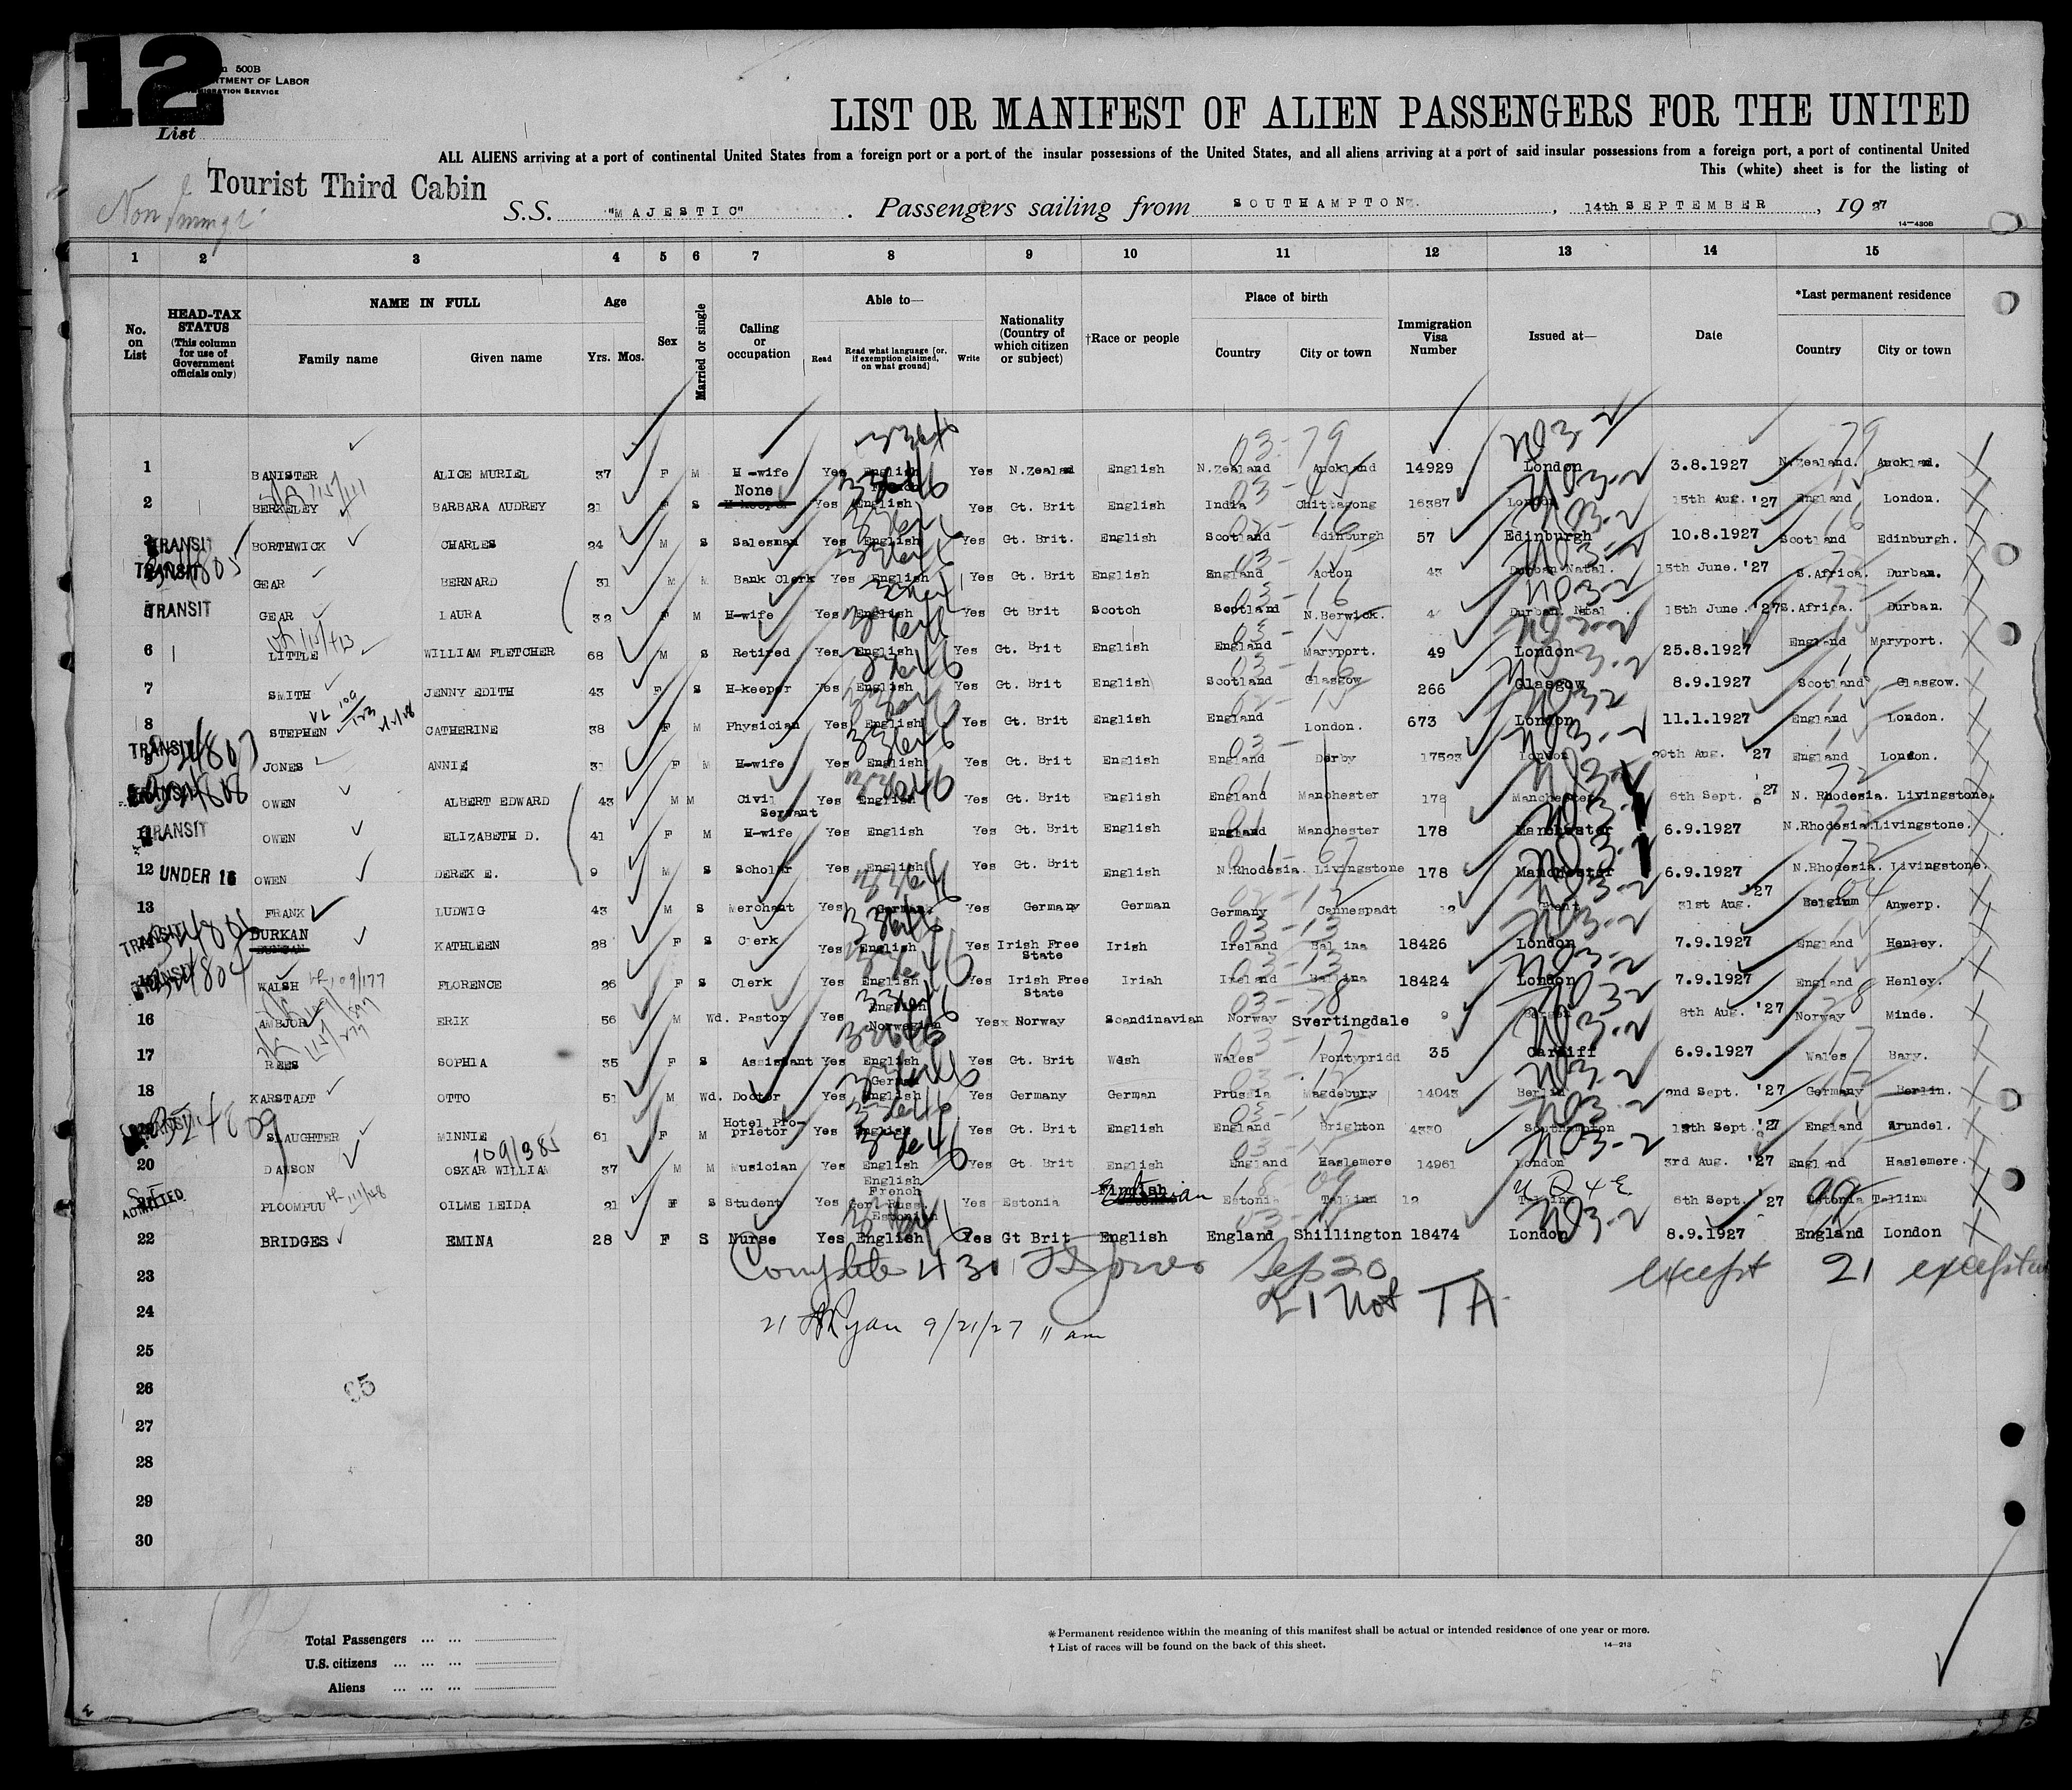 12
500B
RTMENT OF LABOR
IGRATION SERVICE
List
LIST OR MANIFEST OF ALIEN PASSENGERS FOR THE UNITED
ALL ALIENS arriving at a port of continental United States from a foreign port or a port of the insular possessions of the United States, and all aliens arriving at a port of said insular possessions from a foreign port, a port of continental United
This (white) sheet is for the listing of
Tourist Third Cabin
Non
S.S. "MAJESTIC". Passengers sailing from SOUTHAMPTON, 14th SEPTEMBER, 1927
14—430B
1 2 3 4 5 6 7 8 9 10 11 12 13 14 15
No. on List
HEAD-TAX STATUS (This column for use of Government officials only)
NAME IN FULL
Family name Given name
Age
Yrs. Mos.
Sex
Married or single
Calling or occupation
Able to—
Read
Read what language [or, if exemption claimed, on what ground]
Write
Nationality (Country of which citizen or subject)
†Race or people
Place of birth
Country City or town
Immigration Visa Number
Issued at—
Date
*Last permanent residence
Country City or town
1 BANISTER ALICE MURIEL 37 F M H-wife Yes English Yes N.Zealand English N.Zealand Auckland 14929 London 3.8.1927 N.Zealand. Auckland.
2 BERKELEY BARBARA AUDREY 21 F S None Yes English Yes Gt. Brit English India Chittagong 16387 London 15th Aug. '27 England London.
TRANSIT BORTHWICK CHARLES 24 M S Salesman Yes English Yes Gt. Brit. English Scotland Edinburgh 57 Edinburgh 10.8.1927 Scotland Edinburgh.
TRANSIT GEAR BERNARD 31 M M Bank Clerk Yes English Yes Gt. Brit English England Acton 43 Durban Natal. 15th June. '27 S.Africa. Durban.
5 TRANSIT GEAR LAURA 32 F M H-wife Yes English Yes Gt Brit Scotch Scotland N.Berwick. Durban. Natal 15th June. '27 S.Africa. Durban.
6 LITTLE WILLIAM FLETCHER 68 M S Retired Yes English Yes Gt. Brit English England Maryport. 49 London 25.8.1927 England Maryport.
7 SMITH JENNY EDITH 43 F S H-keeper Yes English Yes Gt. Brit English Scotland Glasgow 266 Glasgow 8.9.1927 Scotland Glasgow.
8 STEPHEN CATHERINE 38 F M Physician Yes English Yes Gt. Brit English England London. 673 London 11.1.1927 England London.
TRANSIT JONES ANNIE 31 F M H-wife Yes English Yes Gt. Brit English England Derby 17523 London 29th Aug. '27 England London.
OWEN ALBERT EDWARD 43 M M Civil Servant Yes English Yes Gt. Brit English England Manchester 178 Manchester 6th Sept. '27 N. Rhodesia. Livingstone.
TRANSIT OWEN ELIZABETH D. 41 F M H-wife Yes English Yes Gt. Brit English England Manchester 178 Manchester 6.9.1927 N.Rhodesia. Livingstone.
12 UNDER 16 OWEN DEREK E. 9 M S Scholar Yes English Yes Gt. Brit English N.Rhodesia. Livingstone 178 Manchester 6.9.1927 N.Rhodesia. Livingstone.
13 FRANK LUDWIG 43 M S Merchant Yes German Yes Germany German Germany Cannespadt 12 31st Aug. '27 Belgium Anwerp.
TRANSIT DURKAN KATHLEEN 28 F S Clerk Yes English Yes Irish Free State Irish Ireland Ballina 18426 London 7.9.1927 England Henley.
WALSH FLORENCE 26 F S Clerk Yes English Yes Irish Free State Irish Ireland Ballina 18424 London 7.9.1927 England Henley.
16 AMBJOR ERIK 56 M Wd. Pastor Yes English Norwegian Yes Norway Scandinavian Norway Svertingdale 9 Bergen 8th Aug. '27 Norway Minde.
17 REES SOPHIA 35 F S Assistant Yes English Yes Gt. Brit Welsh Wales Pontypridd 35 Cardiff 6.9.1927 Wales Bary.
18 KARSTADT OTTO 51 M Wd. Doctor Yes German English Yes Germany German Prussia Magdebury 14043 Berlin 2nd Sept. '27 Germany Berlin.
SLAUGHTER MINNIE 61 F M Hotel Proprietor Yes English Yes Gt. Brit English England Brighton 4330 Southampton Sept. '27 England Arundel.
109/385
20 DAWSON OSKAR WILLIAM 37 M M Musician Yes English Yes Gt Brit English England Haslemere 14961 London 3rd Aug. '27 England Haslemere.
ADMITTED PLOOMPUU OILME LEIDA 21 F S Student Yes English French Ger. Russ. Estonian Yes Estonia Estonian Estonia Tallinn 12 Tallinn 6th Sept. '27 Estonia Tallinn
22 BRIDGES EMINA 28 F S Nurse Yes English Yes Gt Brit English England Shillington 18474 London 8.9.1927 England London
23 Complete Sep 20 except 21
24 21 Not TA
21 Ryan 9/21/27 11 am
25
26
27
28
29
30
Total Passengers ... ...
U.S. citizens ... ... ...
Aliens ... ... ...
* Permanent residence within the meaning of this manifest shall be actual or intended residence of one year or more.
† List of races will be found on the back of this sheet.
14—213